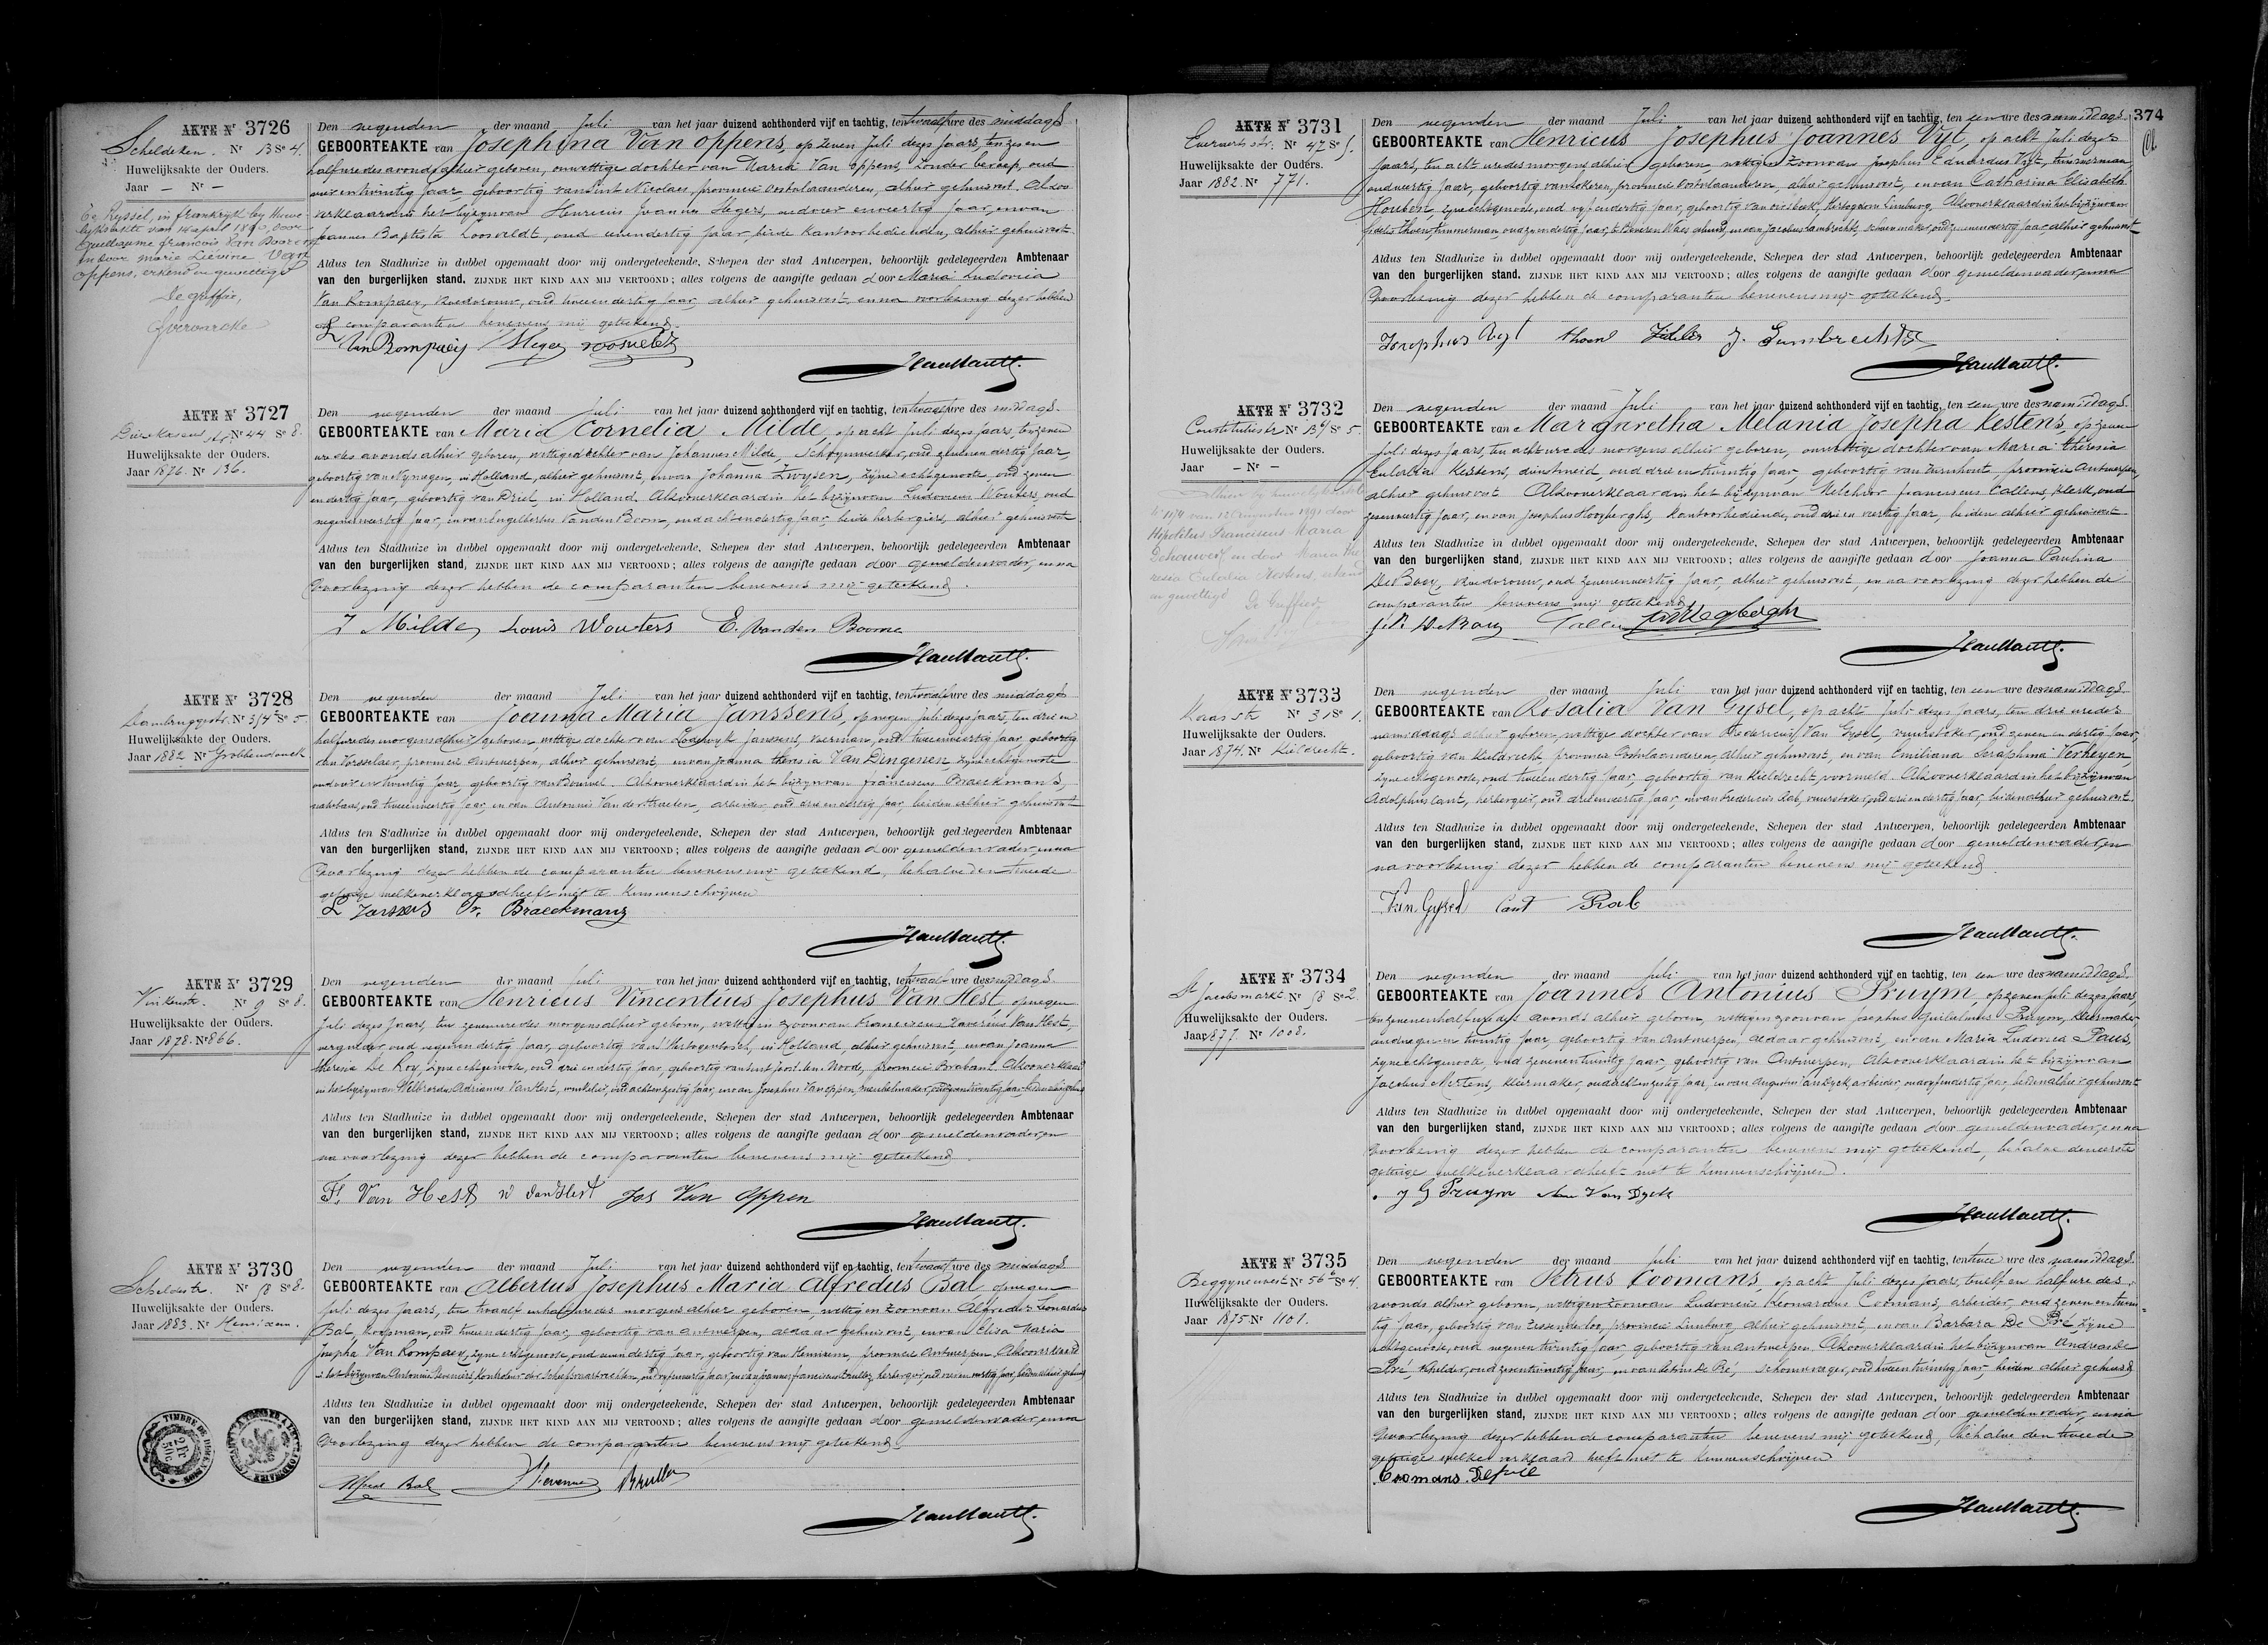 AKTE Nr 3726
Scheldeken. Nr 13 Se 4.
Huwelijksakte der Ouders.
Jaar — Nr —
Te Ryssel, in frankrijk by Huwe-
lyksakte van 14 april 1890, door
Guillaume francois Van
en door Marie Liévine Van
oppens, erkend en gewettigd
De Greffier,
Den negenden der maand Juli van het jaar duizend achthonderd vijf en tachtig, ten twaalf ure des middags
GEBOORTEAKTE van Josephina Van oppens, op zeven Juli dezes jaars, ten zes en
half ure des avonds alhier geboren, onwettige dochter van Maria Van oppens, zonder beroep, oud
vier en twintig jaar, geboortig van sint Nicolaes, provincie Oostvlaanderen, alhier gehuisvest. Alzoo
verklaard in het bijzijn van Henricus Joannes Hegers, oud vier en veertig jaar, en van
Joannes Baptista Roosveldt, oud een en dertig jaar, beide kantoorbedienden, alhier gehuisvest
Aldus ten Stadhuize in dubbel opgemaakt door mij ondergeteekende, Schepen der stad Antwerpen, behoorlijk gedelegeerden Ambtenaar
van den burgerlijken stand, ZIJNDE HET KIND AAN MIJ VERTOOND; alles volgens de aangifte gedaan door Maria Ludovica
Van Rompaey, vroedvrouw, oud twee en dertig jaar, alhier gehuisvest, en na voorlezing dezer hebben
de comparanten benevens mij geteekend.
L Van Rompaeij Heger roosveldt
AKTE Nr 3727
Nr 44 Se 8.
Huwelijksakte der Ouders.
Jaar 1876. Nr 136.
Den negenden der maand Juli van het jaar duizend achthonderd vijf en tachtig, ten twaalf ure des middags.
GEBOORTEAKTE van Maria Cornelia Milde, op acht Juli dezes jaars, ten zeven
ure des avonds alhier geboren, wettige dochter van Johannes Milde, schrijnwerker, oud zeven en dertig jaar,
geboortig van Nymegen, in Holland, alhier gehuisvest, en van Johanna Zwysen, zijne echtgenoote, oud zeven
en dertig jaar, geboortig van Driel, in Holland. Alzoo verklaard in het bijzijn van Ludovicus Wouters, oud
negen en veertig jaar, en van Engelbertus Van den Boom, oud acht en dertig jaar, beide herbergiers, alhier gehuisvest
Aldus ten Stadhuize in dubbel opgemaakt door mij ondergeteekende, Schepen der stad Antwerpen, behoorlijk gedelegeerden Ambtenaar
van den burgerlijken stand, ZIJNDE HET KIND AAN MIJ VERTOOND; alles volgens de aangifte gedaan door gemelden vader, en na
voorlezing dezer hebben de comparanten benevens mij geteekend.
J Milde, Louis Wouters E. Vanden Boome
AKTE Nr 3728
Lambruggestr. Nr 3/4 Se 5
Huwelijksakte der Ouders.
Jaar 1882 Nr Grobbendonck
Den negenden der maand Juli van het jaar duizend achthonderd vijf en tachtig, ten twaalf ure des middags
GEBOORTEAKTE van Joanna Maria Janssens, op negen Juli dezes jaars, ten drie en
half ure des morgens alhier geboren, wettige dochter van Lodewyk Janssens, voerman, oud twee en veertig jaar, geboortig
van Vorsselaer, provincie Antwerpen, alhier gehuisvest, en van Joanna theresia Van Dingenen, zijne echtgenoote
oud vier en twintig jaar, geboortig van Bouwel. Alzoo verklaard in het bijzijn van franciscus Braeckmans,
natiebaas, oud twee en veertig jaar, en van Antonius Van der Straeten, arbeider, oud drie en veertig jaar, beiden alhier gehuisvest
Aldus ten Stadhuize in dubbel opgemaakt door mij ondergeteekende, Schepen der stad Antwerpen, behoorlijk gedelegeerden Ambtenaar
van den burgerlijken stand, ZIJNDE HET KIND AAN MIJ VERTOOND; alles volgens de aangifte gedaan door gemelden vader, en na
voorlezing dezer hebben de comparanten benevens mij geteekend, behalve den tweede
getuige welke verklaard heeft niet te kunnen schrijven
L Janssens Fr. Braeckmans
AKTE Nr 3729
Vinkenstr. Nr 9 Se 8.
Huwelijksakte der Ouders.
Jaar 1878. Nr 866.
Den negenden der maand Juli van het jaar duizend achthonderd vijf en tachtig, ten twaalf ure des middags.
GEBOORTEAKTE van Henricus Vincentius Josephus Van Hest, op negen
Juli dezes jaars, ten zeven ure des morgens alhier geboren, wettigen zoon van Franciscus Xaverius Van Hest,
vergulder, oud negen en dertig jaar, geboortig van 's Hertogenbosch, in Holland, alhier gehuisvest, en van Joanna
theresia De Roy, zijne echtgenoote, oud drie en dertig jaar, geboortig van sint Joost ten Noode, provincie Brabant. Alzoo verklaard
in het bijzijn van Wilbrordus Adrianus Van Hest, winkelier, oud acht en zestig jaar, en van Josephus Van oppen, meubelmaker,
Aldus ten Stadhuize in dubbel opgemaakt door mij ondergeteekende, Schepen der stad Antwerpen, behoorlijk gedelegeerden Ambtenaar
van den burgerlijken stand, ZIJNDE HET KIND AAN MIJ VERTOOND; alles volgens de aangifte gedaan door gemelden vader, en
na voorlezing dezer hebben de comparanten benevens mij geteekend.
Fs. Van Hest W Van Hest Jos Van Oppen
AKTE Nr 3730
Scheldestr. Nr 18 Se 8.
Huwelijksakte der Ouders.
Jaar 1883. Nr Hemixem.
TIMBRE DE DIMENSION
2 FR 50 C
Den negenden der maand Juli van het jaar duizend achthonderd vijf en tachtig, ten twaalf ure des middags
GEBOORTEAKTE van Albertus Josephus Maria Alfredus Bal, op negen
Juli dezes jaars, ten twaalf en half ure des morgens alhier geboren, wettigen zoon van Alfredus Leonardus
Bal, koopman, oud twee en dertig jaar, geboortig van Antwerpen, aldaar gehuisvest, en van Elisa Maria
Josepha Van Rompaey, zyne echtgenoote, oud een en dertig jaar, geboortig van Hemixem, provincie Antwerpen. Alzoo verklaard
in het bijzijn van Antonius Stevenier,
Aldus ten Stadhuize in dubbel opgemaakt door mij ondergeteekende, Schepen der stad Antwerpen, behoorlijk gedelegeerden Ambtenaar
van den burgerlijken stand, ZIJNDE HET KIND AAN MIJ VERTOOND; alles volgens de aangifte gedaan door gemelden vader, en na
voorlezing dezer hebben de comparanten benevens mij geteekend.
Alfred Bal
374
AKTE Nr 3731
Everaertsstr. Nr 47 Se 5.
Huwelijksakte der Ouders.
Jaar 1882. Nr 771.
Den negenden der maand Juli van het jaar duizend achthonderd vijf en tachtig, ten een ure des namiddags
GEBOORTEAKTE van Henricus Josephus Joannes Vyt, op acht Juli dezes
jaars, ten acht ure des morgens alhier geboren, wettigen zoon van Josephus Eduardus Vyt, timmerman
oud veertig jaar, geboortig van Lokeren, provincie Oostvlaanderen, alhier gehuisvest, en van Catharina Elisabeth
Houben, zyne echtgenoote, oud vyf en dertig jaar, geboortig van oirsbeek, Hertogdom Limburg. Alzoo verklaard in het bijzijn van
fidelis thoen, timmerman,
Aldus ten Stadhuize in dubbel opgemaakt door mij ondergeteekende, Schepen der stad Antwerpen, behoorlijk gedelegeerden Ambtenaar
van den burgerlijken stand, ZIJNDE HET KIND AAN MIJ VERTOOND; alles volgens de aangifte gedaan door gemelden vader, en na
voorlezing dezer hebben de comparanten benevens mij geteekend.
Josephus Vyt thoen Fidelis J. Lambrechts
AKTE Nr 3732
Constitutiestr Nr 134 Se 5
Huwelijksakte der Ouders.
Jaar — Nr —
Alhier bij huwelyksakte
Nr 1174 van 12 Augustus 1891 door
Hipolitus Franciscus Maria
en door Maria The-
resia Eulalia Kestens, erkend
en gewettigd
De Greffier,
Den negenden der maand Juli van het jaar duizend achthonderd vijf en tachtig, ten een ure des namiddags.
GEBOORTEAKTE van Margaretha Melania Josepha Kestens, op zeven
Juli dezes jaars, ten acht ure des morgens alhier geboren, onwettige dochter van Maria theresia
Eulalia Kestens, dienstmeid, oud drie en twintig jaar, geboortig van Turnhout, provincie Antwerpen,
alhier gehuisvest. Alzoo verklaard in het bijzijn van Melchior franciscus Callens, klerk, oud
zes en veertig jaar, en van Josephus Hooyberghs, kantoorbediende, oud drie en veertig jaar, beiden alhier gehuisvest.
Aldus ten Stadhuize in dubbel opgemaakt door mij ondergeteekende, Schepen der stad Antwerpen, behoorlijk gedelegeerden Ambtenaar
van den burgerlijken stand, ZIJNDE HET KIND AAN MIJ VERTOOND; alles volgens de aangifte gedaan door Joanna Paulina
De Boey, vroedvrouw, oud zeven en veertig jaar, alhier gehuisvest, en na voorlezing dezer hebben de
comparanten benevens mij geteekend
AKTE Nr 3733
Kaasstr Nr 3 Se 1.
Huwelijksakte der Ouders.
Jaar 1874. Nr Kieldrecht.
Den negenden der maand Juli van het jaar duizend achthonderd vijf en tachtig, ten een ure des namiddags
GEBOORTEAKTE van Rosalia Van Gysel, op acht Juli dezes jaars, ten drie ure des
namiddags alhier geboren, wettige dochter van Fredericus Van Gysel, vuurstoker, oud zeven en dertig jaar,
geboortig van Kieldrecht, provincie Oostvlaanderen, alhier gehuisvest, en van Emiliana Seraphina Verheyen,
zyne echtgenoote, oud twee en dertig jaar, geboortig van Kieldrecht, voormeld. Alzoo verklaard in het bijzijn van
Adolphus Cant, herbergier, oud drie en veertig jaar, en van Fredericus Rab, vuurstoker, oud drie en dertig jaar, beiden alhier gehuisvest.
Aldus ten Stadhuize in dubbel opgemaakt door mij ondergeteekende, Schepen der stad Antwerpen, behoorlijk gedelegeerden Ambtenaar
van den burgerlijken stand, ZIJNDE HET KIND AAN MIJ VERTOOND; alles volgens de aangifte gedaan door gemelden vader, en
na voorlezing dezer hebben de comparanten benevens mij geteekend.
Van Gysel Cant Rab
AKTE Nr 3734
St Jacobsmarkt Nr 18 Se 2.
Huwelijksakte der Ouders.
Jaar 1877. Nr 1008.
Den negenden der maand Juli van het jaar duizend achthonderd vijf en tachtig, ten een ure des namiddags.
GEBOORTEAKTE van Joannes Antonius Pruym, op zeven Juli dezes jaars,
ten zeven en half ure des avonds alhier geboren, wettigen zoon van Josephus Guilielmus Pruym, kleermaker,
oud negen en twintig jaar, geboortig van Antwerpen, aldaar gehuisvest, en van Maria Ludovica Paus,
zyne echtgenoote, oud zeven en twintig jaar, geboortig van Antwerpen. Alzoo verklaard in het bijzijn van
Jacobus Mertens, kleermaker, oud acht en zestig jaar, en van Augustus Van Dyck, arbeider, oud vyf en veertig jaar, beiden alhier gehuisvest
Aldus ten Stadhuize in dubbel opgemaakt door mij ondergeteekende, Schepen der stad Antwerpen, behoorlijk gedelegeerden Ambtenaar
van den burgerlijken stand, ZIJNDE HET KIND AAN MIJ VERTOOND; alles volgens de aangifte gedaan door gemelden vader, en na
voorlezing dezer hebben de comparanten benevens mij geteekend, behalve den eerste
getuige welke verklaard heeft niet te kunnen schrijven.
J G Pruym Van Dyck
AKTE Nr 3735
Beggynevest Nr 56 Se 4.
Huwelijksakte der Ouders.
Jaar 1875 Nr 1101.
Den negenden der maand Juli van het jaar duizend achthonderd vijf en tachtig, ten twee ure des namiddags
GEBOORTEAKTE van Petrus Coomans, op acht Juli dezes jaars, ten elf en half ure des
avonds alhier geboren, wettigen zoon van Ludovicus Leonardus Coomans, arbeider, oud zeven en twin-
tig jaar, geboortig van Tessenderloo, provincie Limburg, alhier gehuisvest, en van Barbara De Pré, zijne
echtgenoote, oud negen en twintig jaar, geboortig van Antwerpen. Alzoo verklaard in het bijzijn van Andreas De
Pré, schilder, oud zes en twintig jaar, en van Antonius De Pré, schouwvager, oud twee en twintig jaar, beiden alhier gehuisd
Aldus ten Stadhuize in dubbel opgemaakt door mij ondergeteekende, Schepen der stad Antwerpen, behoorlijk gedelegeerden Ambtenaar
van den burgerlijken stand, ZIJNDE HET KIND AAN MIJ VERTOOND; alles volgens de aangifte gedaan door gemelden vader, en na
voorlezing dezer hebben de comparanten benevens mij geteekend, behalve den tweede
getuige welke verklaard heeft niet te kunnen schrijven
Coomans Depré